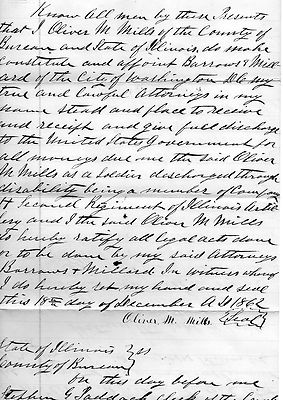 Know all men by these Presents
that I Oliver M Mills of the County of
Bureau and State of Illinois, do make
Constitute and appoint Barrows & Mill
ard of the City of Washington D.C. my
true and Lawful Attorneys in my
name stead and place to receive
and receipt and give full discharge
to the United States Government for
all moneys due me the said Oliver
M Mills as a Soldier discharged through
disability being a member of Company
H Second Regiment of Illinois Artil
lery and I the said Oliver M Mills
do hereby ratify all legal acts done
or to be done by my said Attorneys
Barrows & Millard In witness whereof
I do hereby set my hand and seal
this 18th day of December A D 1862
Oliver. M. Mills Seal
State of Illinois } ss
County of Bureau }
On this day before me
Stephen G Paddock clerk of the